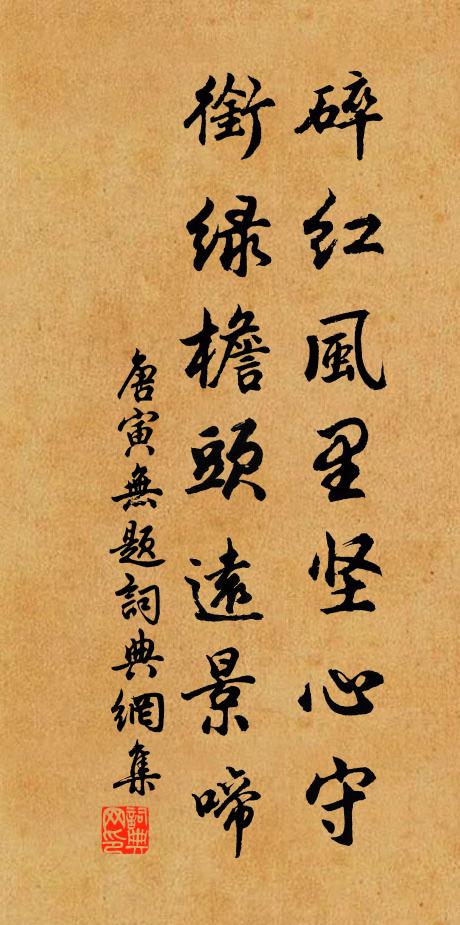 碎红風里坚心守
銜绿檐頭遠景啼
唐寅無题詞典網集
詞典网印